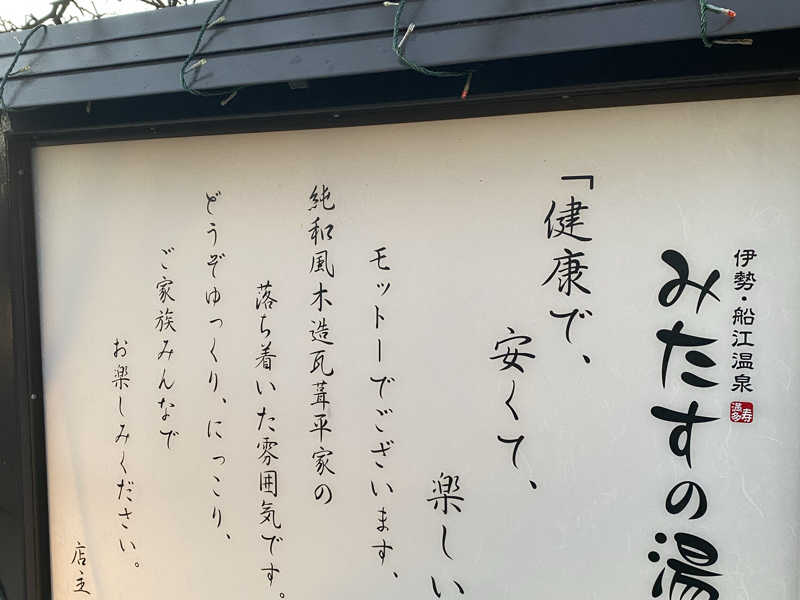 伊勢・船江温泉
満寿多
みたすの湯
「健康で、
安くて、
楽しい
モットーでございます、
純和風木造瓦葺平家の
落ち着いた雰囲気です。
どうぞゆっくり、にっこり、
ご家族みんなで
お楽しみください。
店主